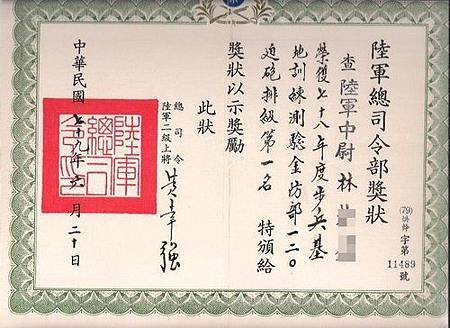 陸軍總司令部獎狀
(79)
字第
11489
號
查陸軍中尉林
榮獲七十八年度步兵基
地訓練測驗金防部一二○
迫砲排級第一名 特頒給
獎狀以示獎勵
此狀
總司令
陸軍二級上將
黃幸強
中華民國七十九年元月二十日
陸軍
總司
令印